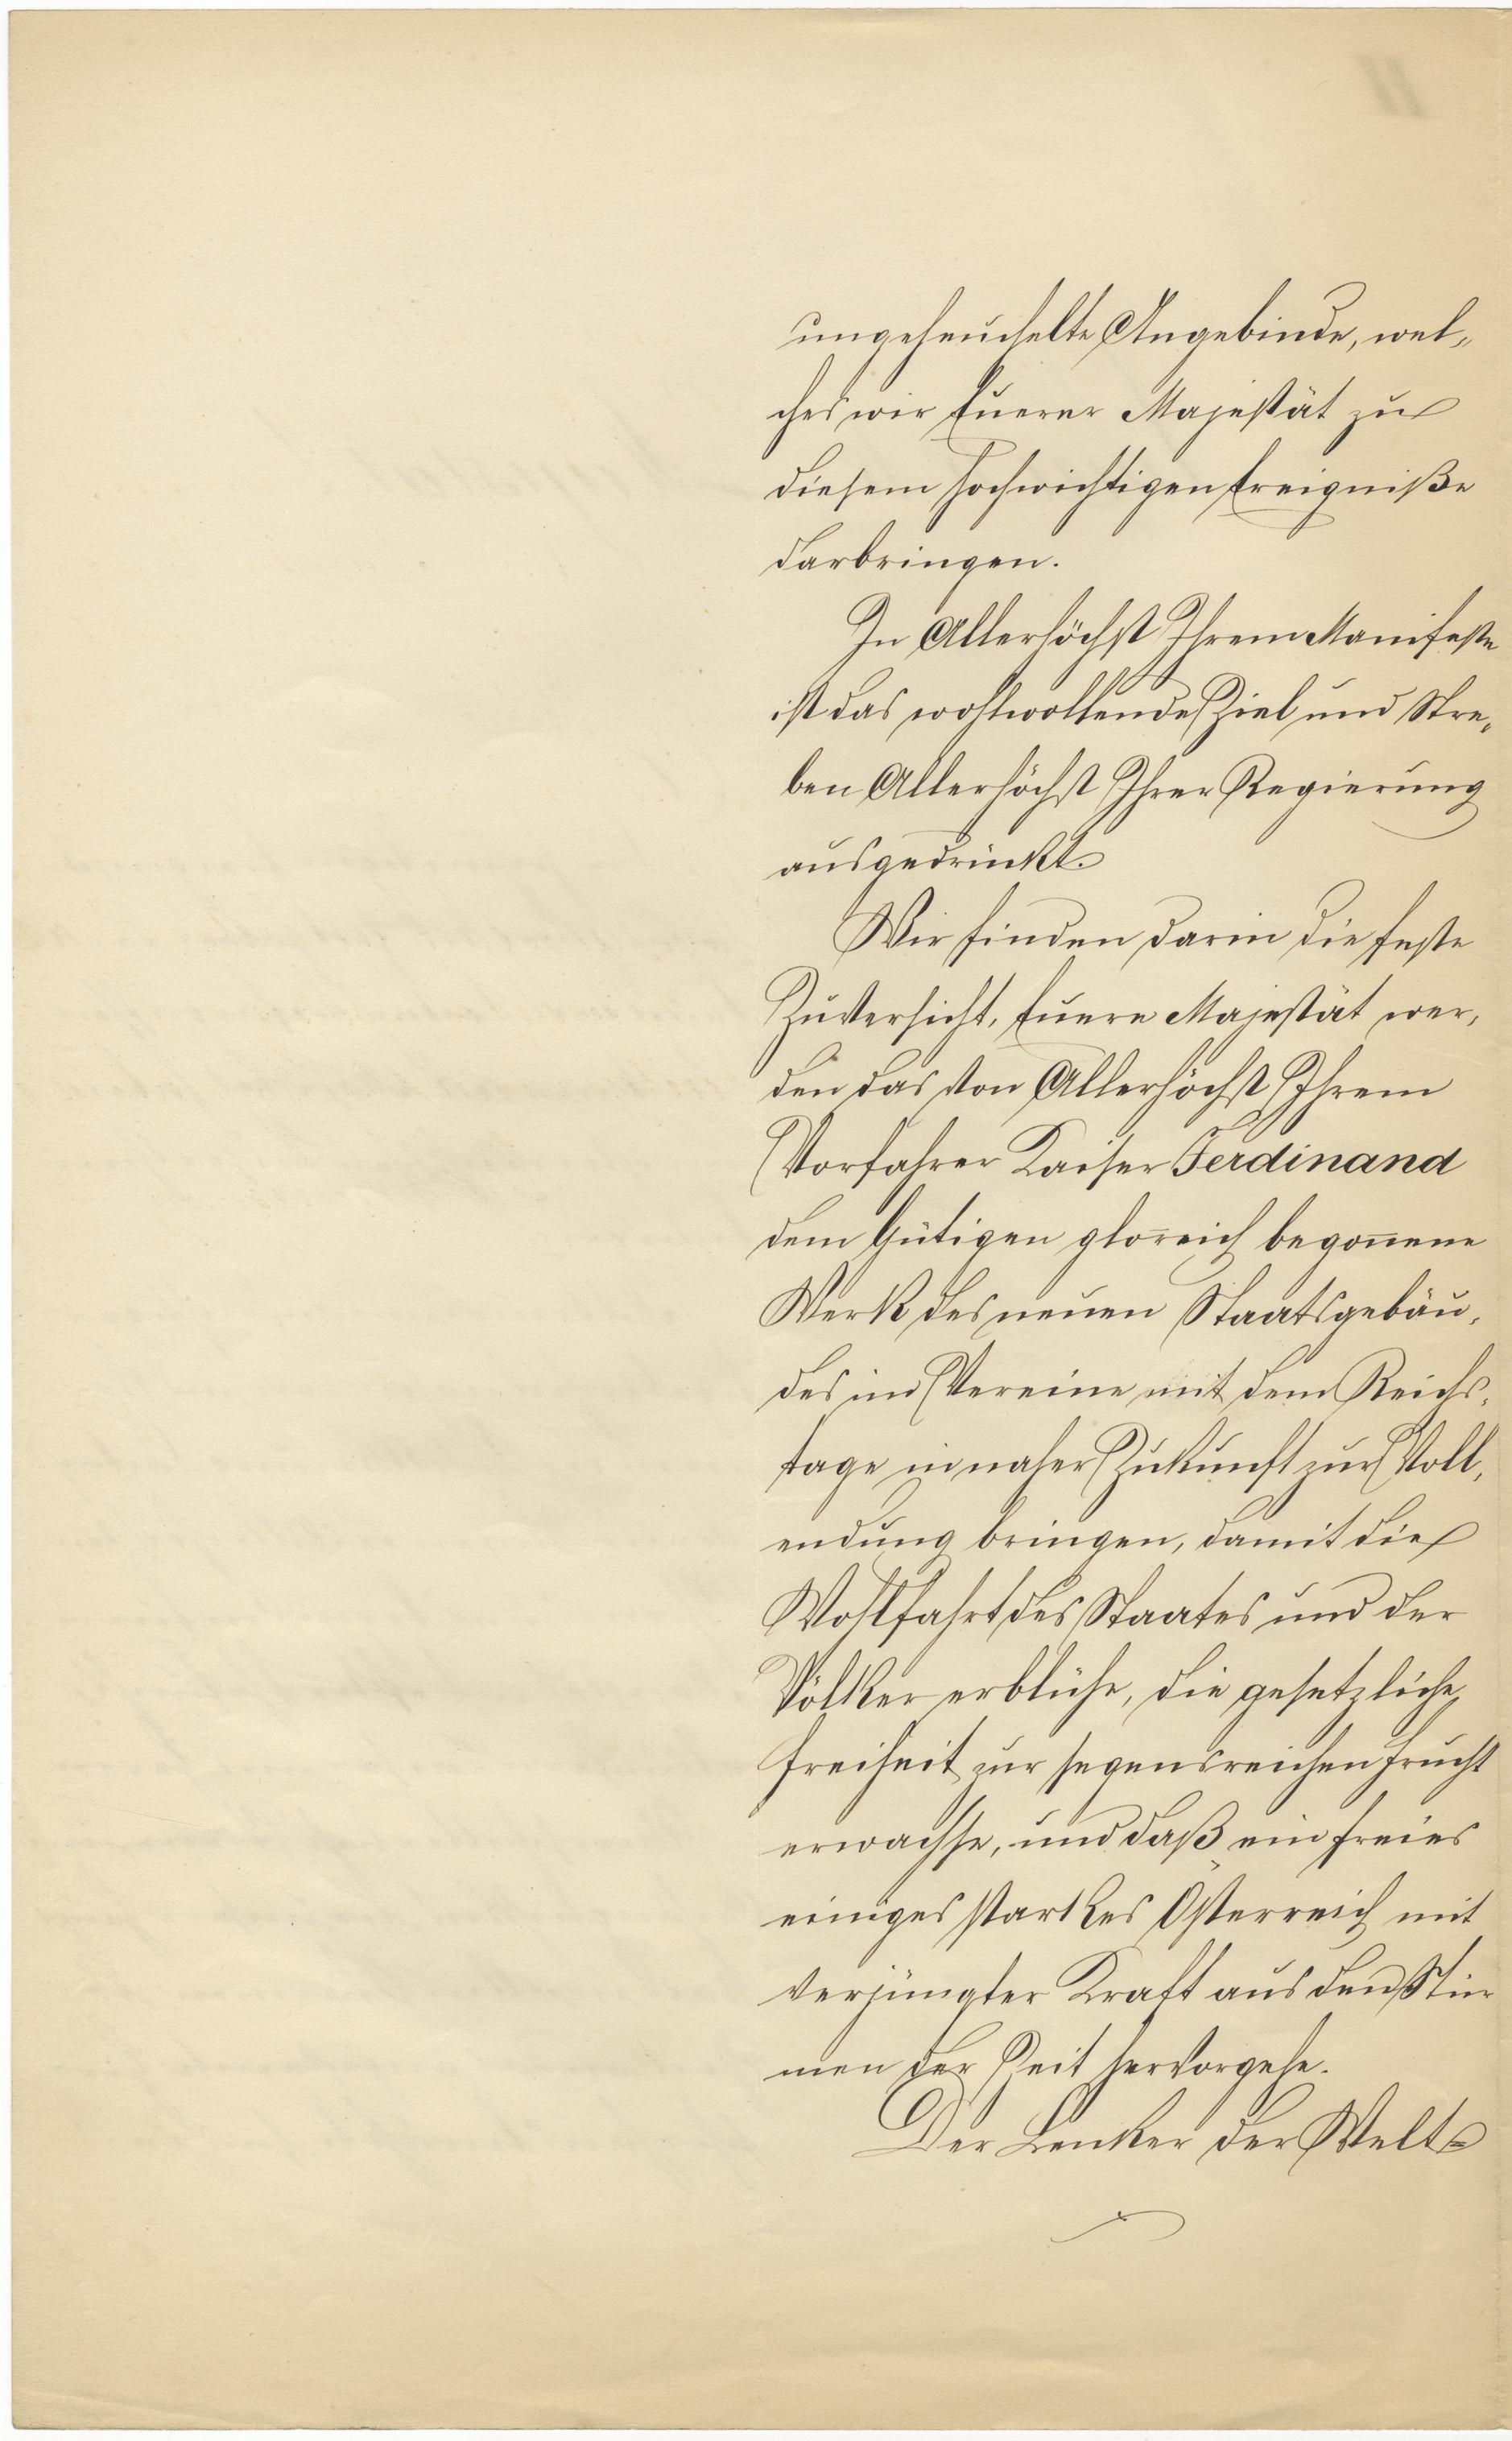 ungeheuchelte Angebinde, wel„
ches wir Euerer Majestät zu
diesem hochwichtigen Ereigniße
darbringen.
In Allerhöchst Ihrem Manifeste
ist das wohlwollende Ziel und Stre„
ben Allerhöchst Ihrer Regierung
ausgedrückt.
Wir finden darin die feste
Zuversicht, Euere Majestät wer„
den das von Allerhöchst Ihrem
Vorfahrer Kaiser Ferdinand
dem Gütigen glorreich begonnene
Werk des neuen Staatsgebäu„
des im Vereine mit dem Reichs„
tage in naher Zukunft zur Voll„
endung bringen, damit die
Wohlfahrt des Staates und der
Völker erblühe, die gesetzliche
Freiheit zur segensreichen Frucht
erwachse, und daß ein freies
einiges starkes Österreich mit
verjüngter Kraft aus den Stür
men der Zeit hervorgehe.
Der Lenker der Welt